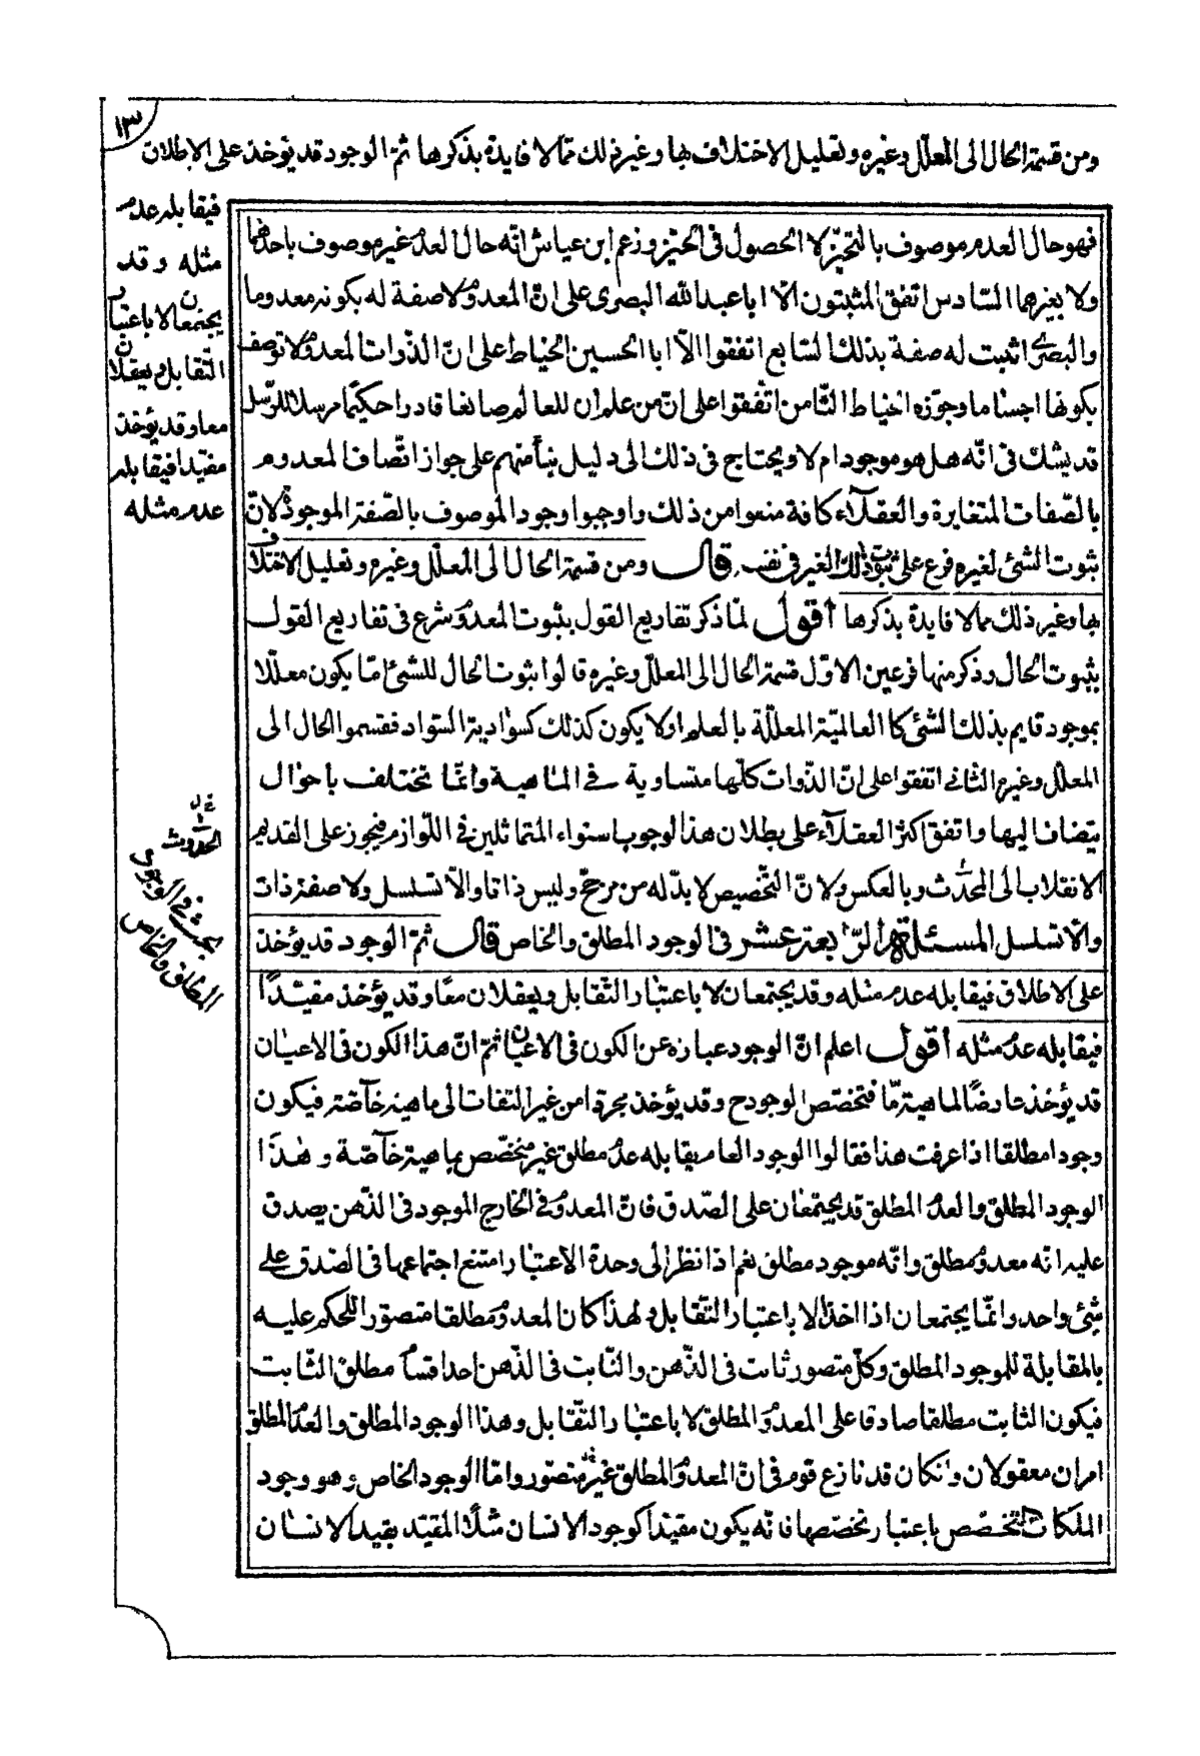 ١٣
ومن قسمة الحال الى المعلّل وغيره وتعليل الاختلاف بها وغير ذلك ممّا لا فايدة بذكرها ثمّ الوجود قد يؤخذ على الاطلاق
فيقابله عدم
مثله وقد
يجتمعان لا باعتبار
التقابل ويعقلان
معا وقد يؤخذ
مقيّدا فيقابله
عدم مثله
فهو حال العدم موصوف بالتحيّز لا الحصول فى الحيّز وزعم ابن عياش انّه حال العدم غير موصوف باحدهما
ولا بغيرهما السّادس اتفق المثبتون الّا ابا عبد الله البصرى على انّ المعدوم لا صفة له بكونه معدوما
والبصرى اثبت له صفة بذلك السّابع اتفقوا الّا ابا الحسين الخياط على انّ الذّوات المعدومة لا توصف
بكونها اجساما وجوّزه الخياط الثّامن اتّفقوا على انّ من علم ان للعالم صانعا قادرا حكيما مرسلا للرّسل
قد يشك فى انّه هل هو موجود ام لا ويحتاج فى ذلك الى دليل بناءً منهم على جواز اتّصاف المعدوم
بالصّفات المتغايرة والعقلاء كافة منعوا من ذلك واوجبوا وجود الموصوف بالصّفة الموجودة لانّ
ثبوت الشئ لغيره فرع على ثبوت ذلك الغير فى نفسه قال ومن قسمة الحال الى المعلّل وغيره وتعليل الاختلاف
بها وغير ذلك ممّا لا فايدة بذكرها أقول لمّا ذكر تفاريع القول بثبوت المعدوم شرع فى تفاريع القول
بثبوت الحال وذكر منها فرعين الاوّل قسمة الحال الى المعلّل وغيره قالوا ثبوت الحال للشئ امّا يكون معلّلا
بموجود قايم بذلك الشئ كالعالميّة المعلّلة بالعلم او لا يكون كذلك كسواديّة السّواد فقسموا الحال الى
المعلّل وغيره الثانى اتفقوا على انّ الذّوات كلّها متساوية فى الماهية وانّما تختلف باحوال
يتضاف اليها واتفق اكثر العقلاء على بطلان هذا لوجوب استواء المتماثلين فى اللّوازم فيجوز على القديم
الانقلاب الى المحدَث وبالعكس ولانّ التّخصيص لا بدّ له من مرجّح وليس ذاتا والّا تسلسل ولا صفة ذات
والّا تسلسل المسئلة الرّابعة عشر فى الوجود المطلق والخاص قال ثمّ الوجود قد يؤخذ
على الاطلاق فيقابله عدم مثله وقد يجتمعان لا باعتبار التّقابل ويعقلان معًا وقد يؤخذ مقيّدًا
فيقابله عدم مثله أقول اعلم انّ الوجود عبارة عن الكون فى الاعيان ثمّ انّ هذا الكون فى الاعيان
قد يؤخذ عارضًا لماهيّة مّا فتخصّص الوجود ح وقد يؤخذ مجرّدا من غير التفات الى ماهيّة خاصّة فيكون
وجودا مطلقا اذا عرفت هذا فقالوا الوجود العام يقابله عدم مطلق غير متخصّص بماهيّة خاصّة وهذا
الوجود المطلق والعدم المطلق قد يجتمعان على الصّدق فانّ المعدوم فى الخارج الموجود فى الذّهن يصدق
عليه انّه معدوم مطلق وانّه موجود مطلق نعم اذا نظر الى وحدة الاعتبار امتنع اجتماعهما فى الصّدق على
شئ واحد وانّما يجتمعان اذا اخذا لا باعتبار التّقابل ولهذا كان المعدوم مطلقا متصوّرا للحكم عليه
بالمقابلة للموجود المطلق وكلّ متصور ثابت فى الذّهن والثّابت فى الذّهن احد اقسام مطلق الثّابت
فيكون الثابت مطلقا صادقا على المعدوم المطلق لا باعتبار التّقابل وهذا الوجود المطلق والعدم المطلق
امران معقولان وانكان قد نازع قوم فى انّ المعدوم المطلق غير متصوّر وامّا الوجود الخاص وهو وجود
الملكات المتخصّص باعتبار تخصّصها فانّه يكون مقيّدا كوجود الانسان مثلًا المقيّد بقيد الانسان
الحدوث
بحث فى الوجود
المطلق والخاص